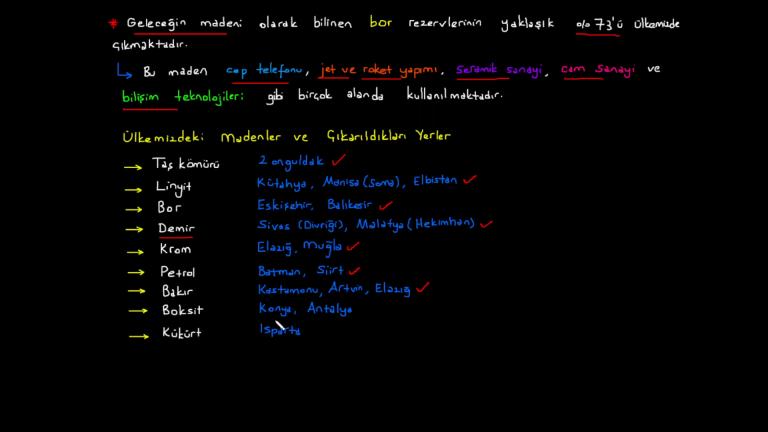 * Geleceğin madeni olarak bilinen bor rezervlerinin yaklaşık %73'ü ülkemizde
çıkmaktadır.
Bu maden cep telefonu, jet ve roket yapımı, seramik sanayi, cam sanayi ve
bilişim teknolojileri gibi birçok alanda kullanılmaktadır.
Ülkemizdeki Madenler ve Çıkarıldıkları Yerler
→ Taş kömürü Zonguldak ✓
→ Linyit Kütahya, Manisa (Soma), Elbistan ✓
→ Bor Eskişehir, Balıkesir ✓
→ Demir Sivas (Divriği), Malatya (Hekimhan) ✓
→ Krom Elazığ, Muğla ✓
→ Petrol Batman, Siirt ✓
→ Bakır Kastamonu, Artvin, Elazığ ✓
→ Boksit Konya, Antalya
→ Kükürt Isparta